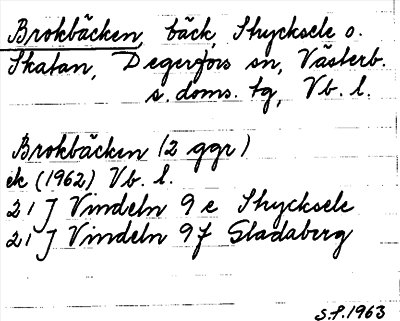 Brokbäcken, bäck, Strycksele o.
Skatan, Degerfors sn, Västerb.
s. doms. tg, Vb. l.
Brokbäcken (2 ggr)
ek (1962) Vb. l.
21 J Vindeln 9 e Strycksele
21 J Vindeln 9 f Gladaberg
S.F. 1963